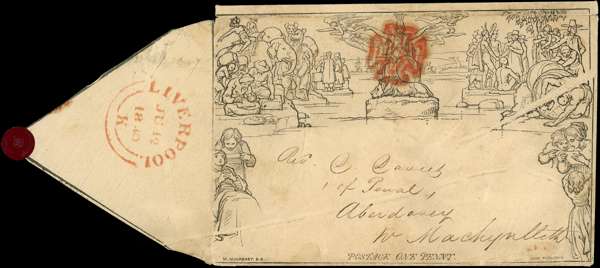 LIVERPOOL
JU 12
1840
K
Rev. C
Aberdovey
Machynlleth
W. MULREADY. R.A.
POSTAGE ONE PENNY.
JOHN THOMPSON